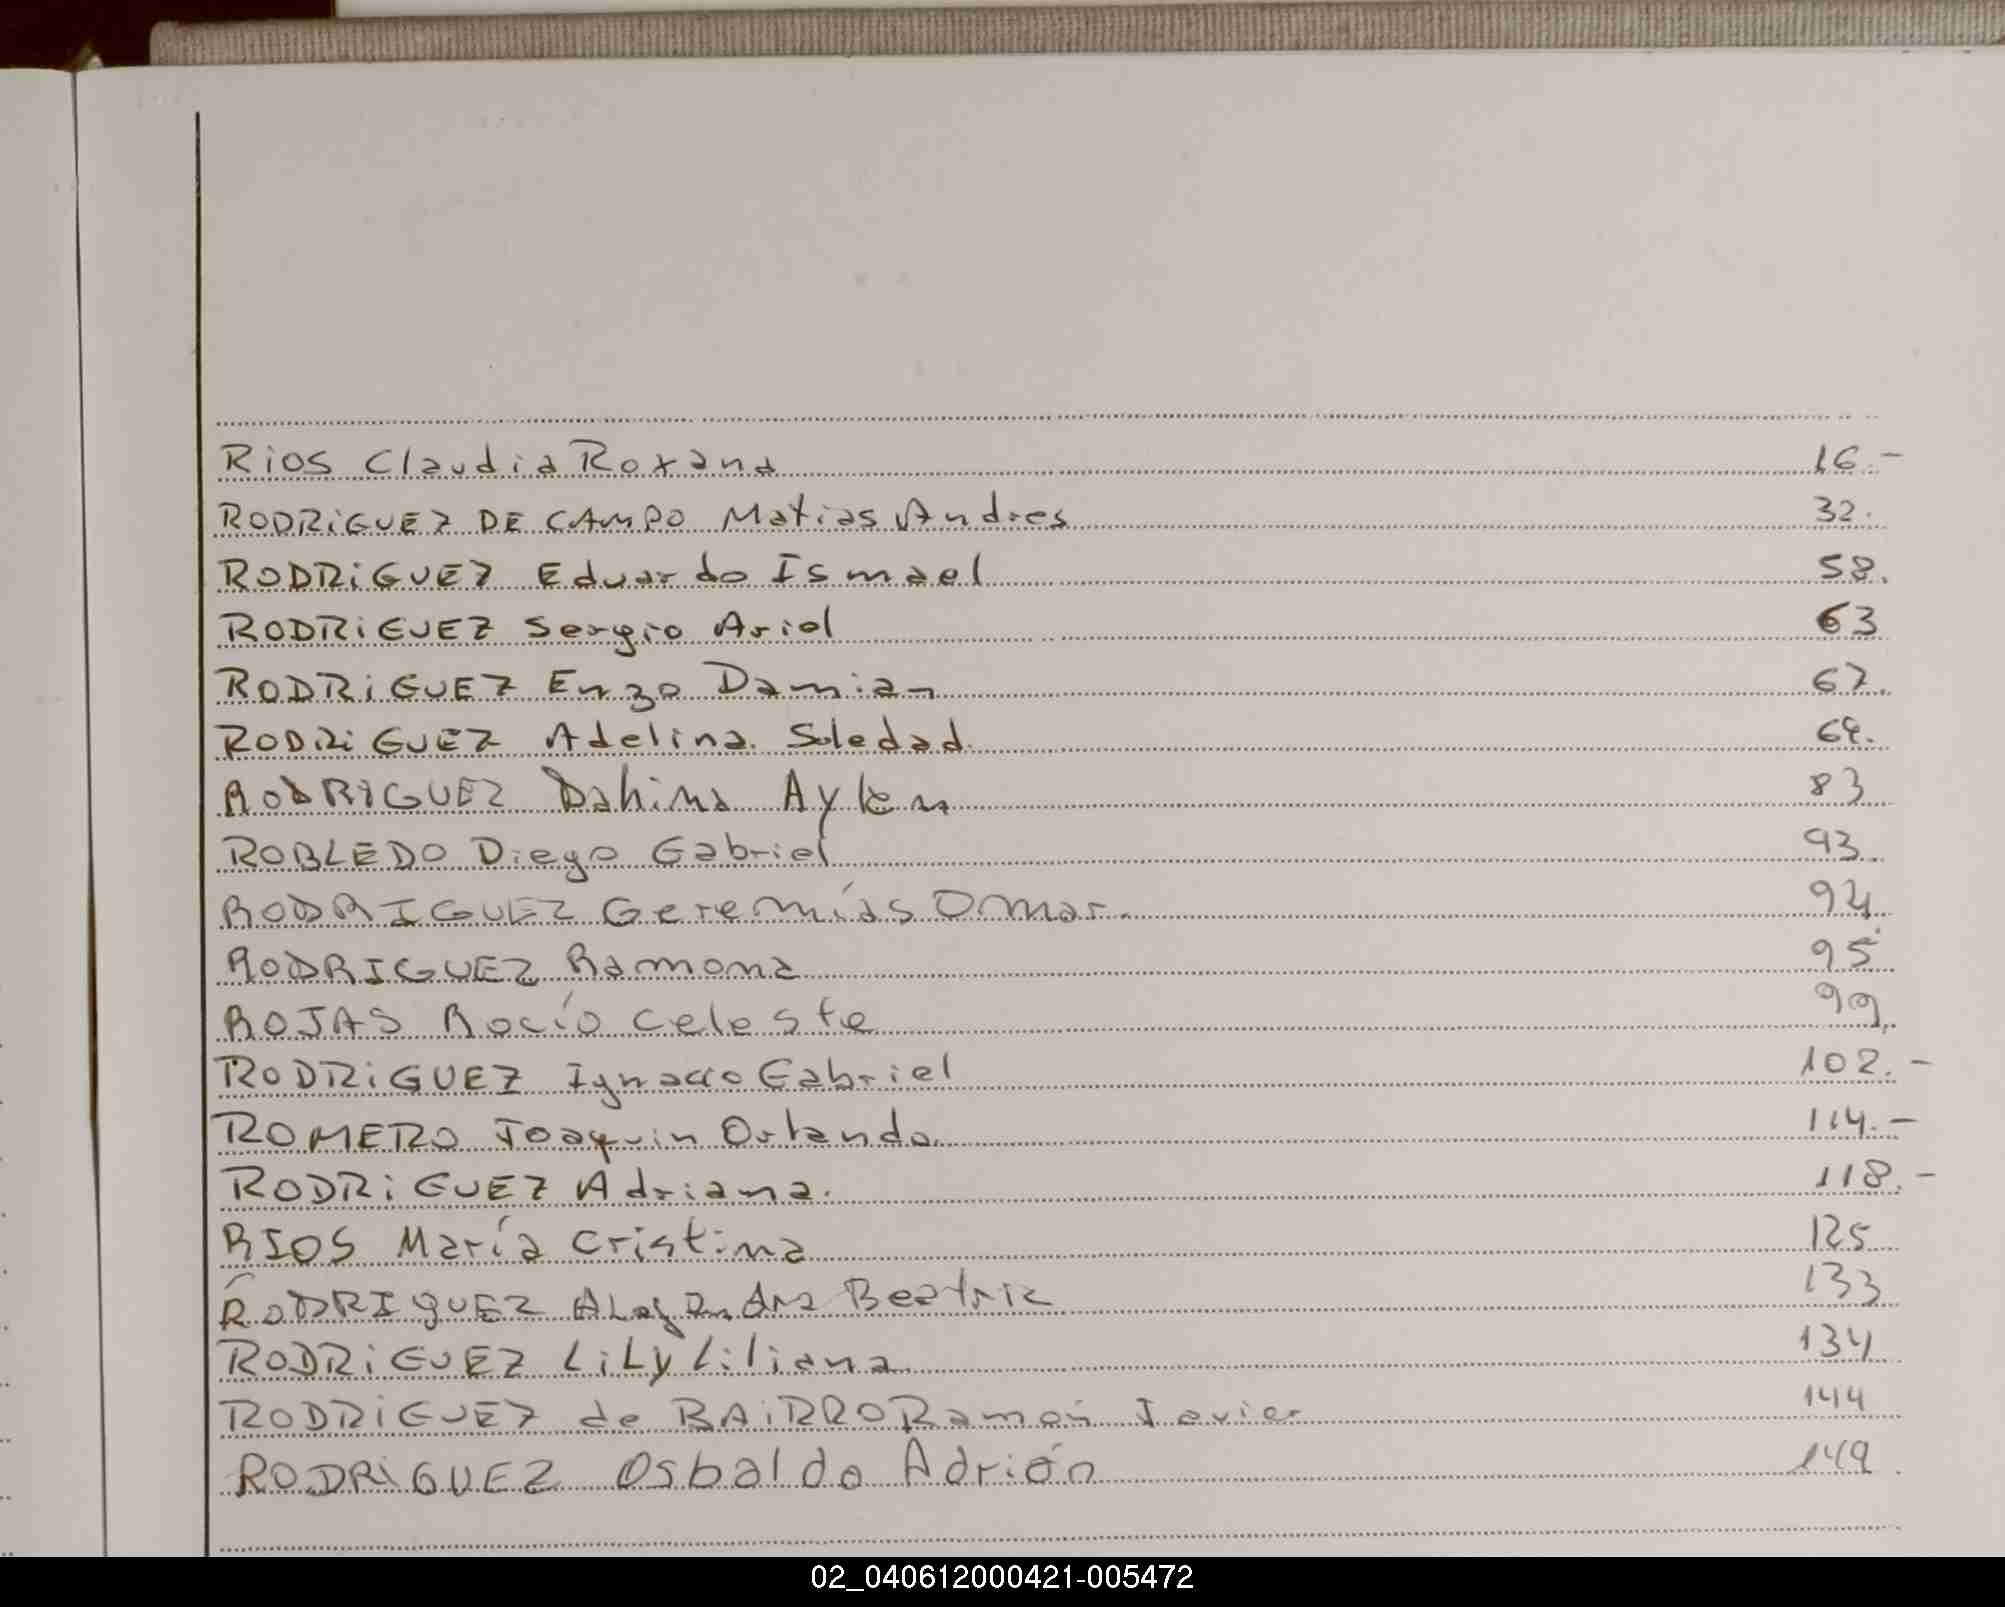 RiOS Claudia Roxana 16.-
RODRiGUEZ DE CAMPO Matias Andres 32.
RODRiGUEZ Eduardo Ismael 58.
RODRiGUEZ Sergio Ariel 63
RODRiGUEZ Enzo Damian 67.
RODRiGUEZ Adelina Soledad 69.
RODRIGUEZ Dahima Aylen 83
ROBLEDO Diego Gabriel 93.
RODRIGUEZ Geremías Omar. 94
RODRIGUEZ Ramona 95
ROJAS Rocío Celeste 99.
RODRiGUEZ Ignacio Gabriel 102.-
ROMERO Joaquin Orlando 114.-
RODRiGUEZ Adriana. 118.-
RIOS María Cristina 125
RODRIGUEZ ALejandra Beatriz 133
RODRiGUEZ LiLy Liliana 134
RODRiGUEZ de BAiRRO Ramón Javier 144
RODRiGUEZ Osbaldo Adrión 149
02_040612000421-005472